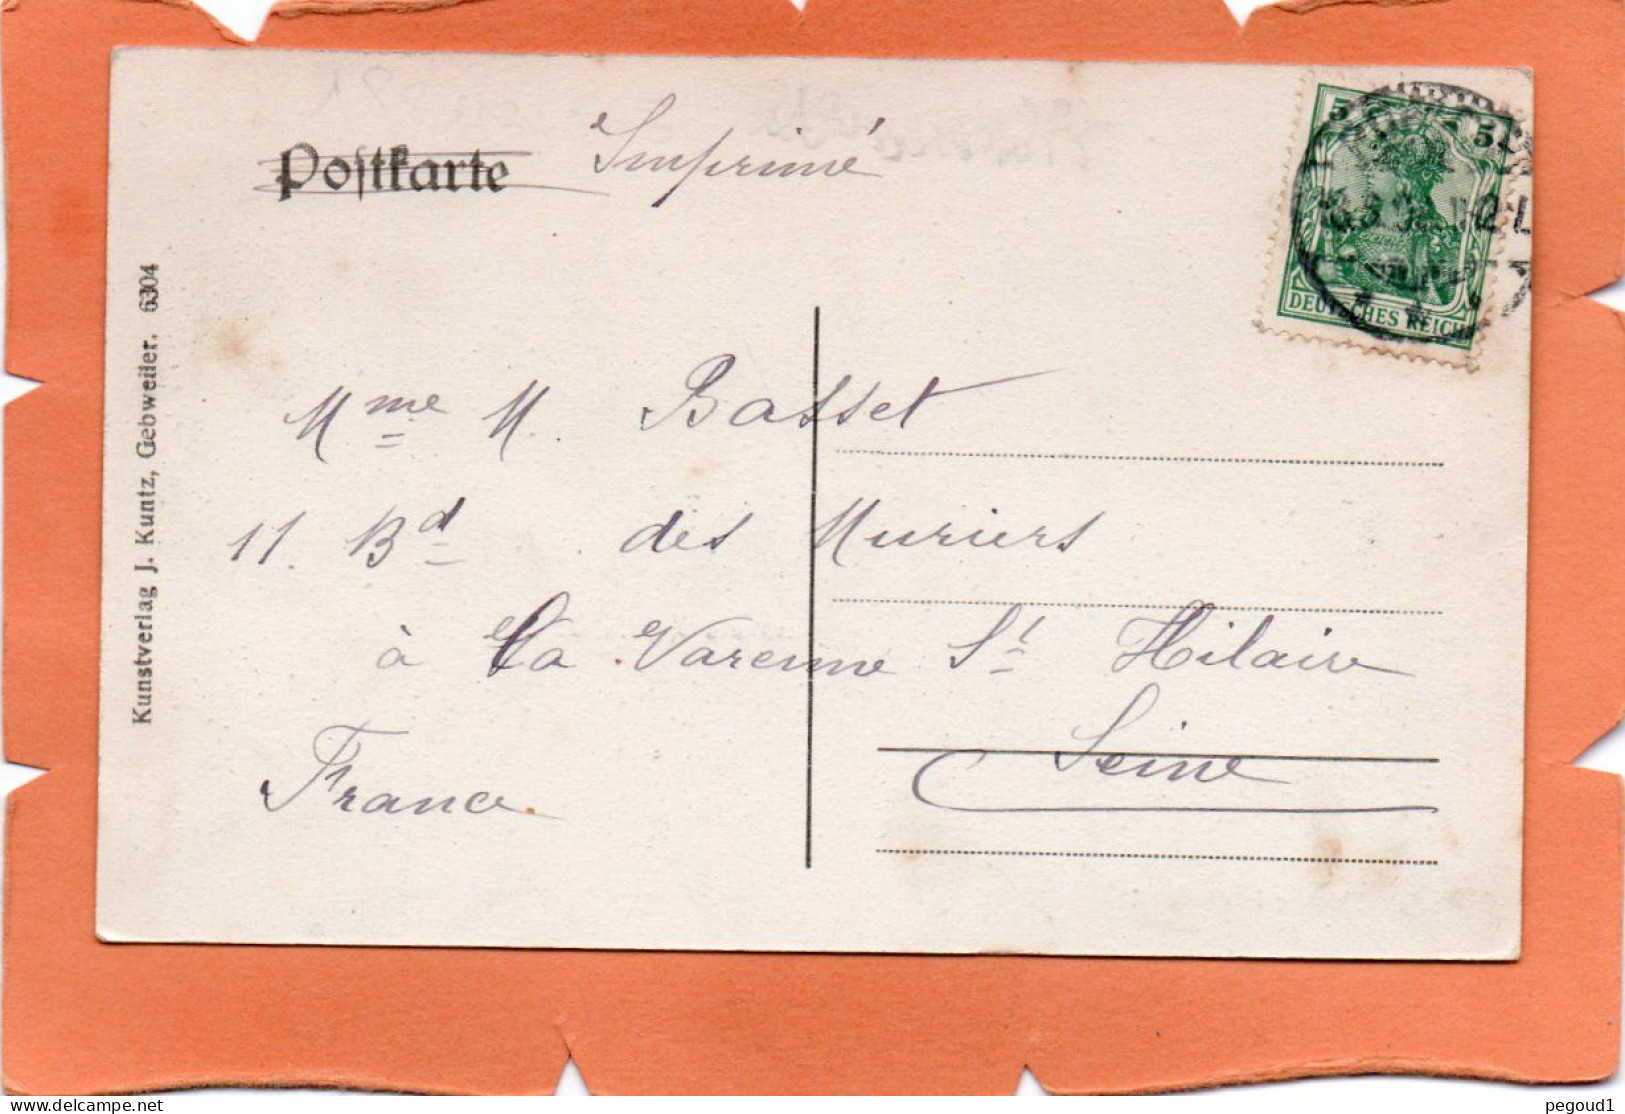 Postkarte Imprimé
5 5
DEUTSCHES REICH
Kunstverlag J. Kuntz, Gebweiler. 6304
Mme M. Basset
11. Bd des Muriers
à La Varenne St Hilaire
Seine
France
https://www.delcampe.net
pegoud1